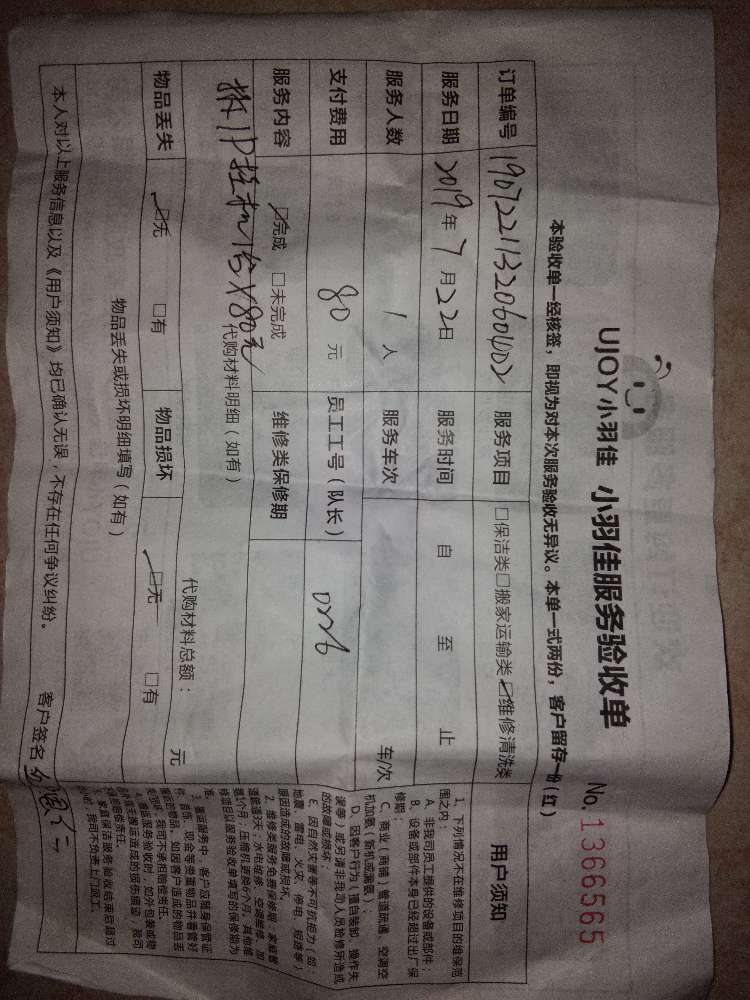 UJOY小羽佳 小羽佳服务验收单
No. 1366565
本验收单一经核签，即视为对本次服务验收无异议。本单一式两份，客户留存一份（红）
订单编号 服务项目 □保洁类□搬家运输类☑维修清洗类
服务日期 2019年7月22日 服务时间 自 至 止
服务人数 1人 服务车次 车/次
支付费用 80元 员工工号（队长）
服务内容 ☑完成 □未完成 维修类保修期
代购材料明细（如有）
拆1P挂机1台×80元
代购材料总额： 元
物品丢失 ☑无 □有 物品损坏 ☑无 □有
物品丢失或损坏明细填写（如有）
本人对以上服务信息以及《用户须知》均已确认无误，不存在任何争议纠纷。 客户签名
用户须知
1、下列情况不在维修项目的维保范
围之内：
A、非我司员工提供的设备或部件；
B、设备或部件本身已经超过出厂保
修期；
C、商业（商铺）管道疏通、空调空
机加氨（新机或漏氨）；
D、因客户行为（擅自装卸、操作失
误等）或另请非我司人员抢修所造成
的故障或损坏；
E、因自然灾害等不可抗拒力（如
地震、雷电、火灾、停电、短路等）
原因造成的故障或损坏。